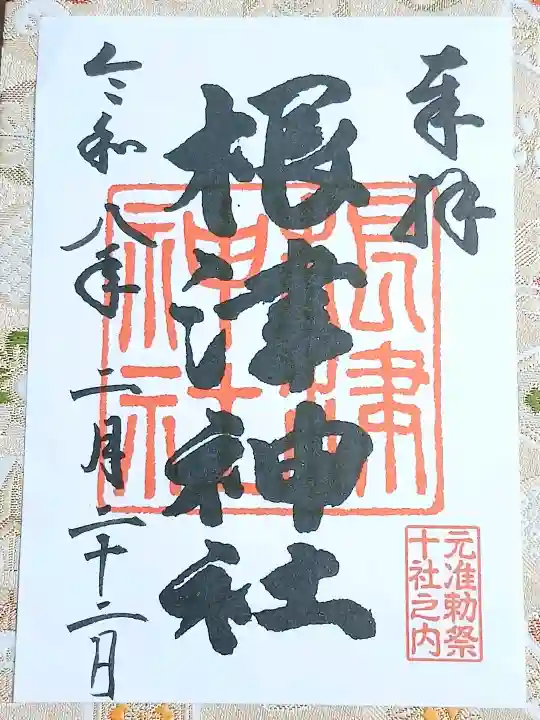 奉拝
根津神社
根津神社
元准勅祭
十社之内
令和八年二月二十二日